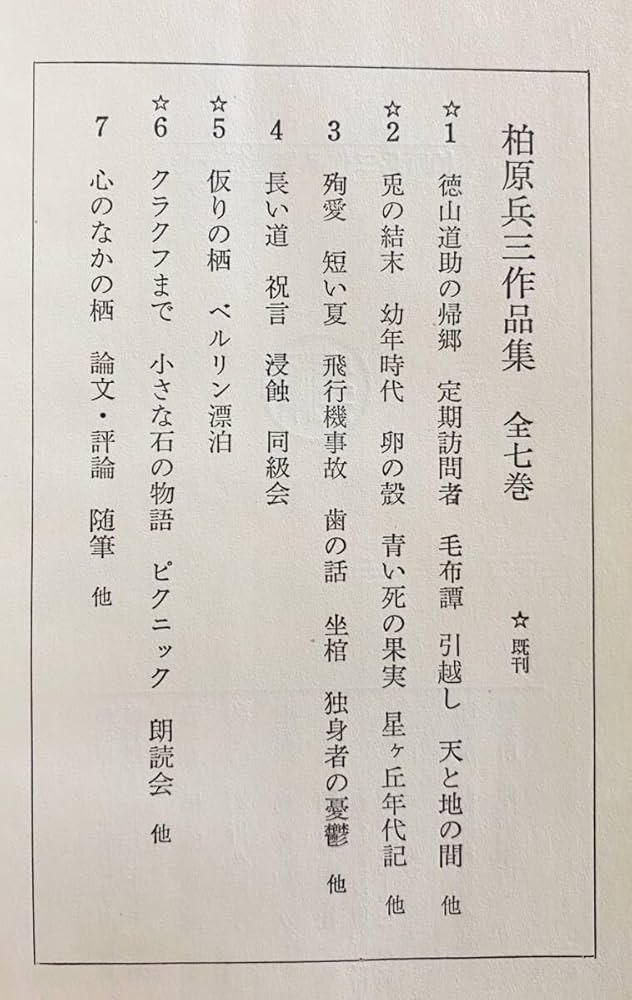 柏原兵三作品集　全七巻　☆既刊
☆1　徳山道助の帰郷　定期訪問者　毛布譚　引越し　天と地の間　他
☆2　兎の結末　幼年時代　卵の殻　青い死の果実　星ヶ丘年代記　他
3　殉愛　短い夏　飛行機事故　歯の話　坐棺　独身者の憂鬱　他
4　長い道　祝言　浸蝕　同級会
☆5　仮りの栖　ベルリン漂泊
☆6　クラクフまで　小さな石の物語　ピクニック　朗読会　他
7　心のなかの栖　論文・評論　随筆　他